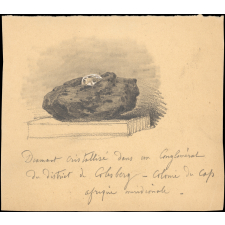 Diamant cristallisé dans un Conglomérat
du district de Colesberg - Colonie du Cap
afrique méridionale.